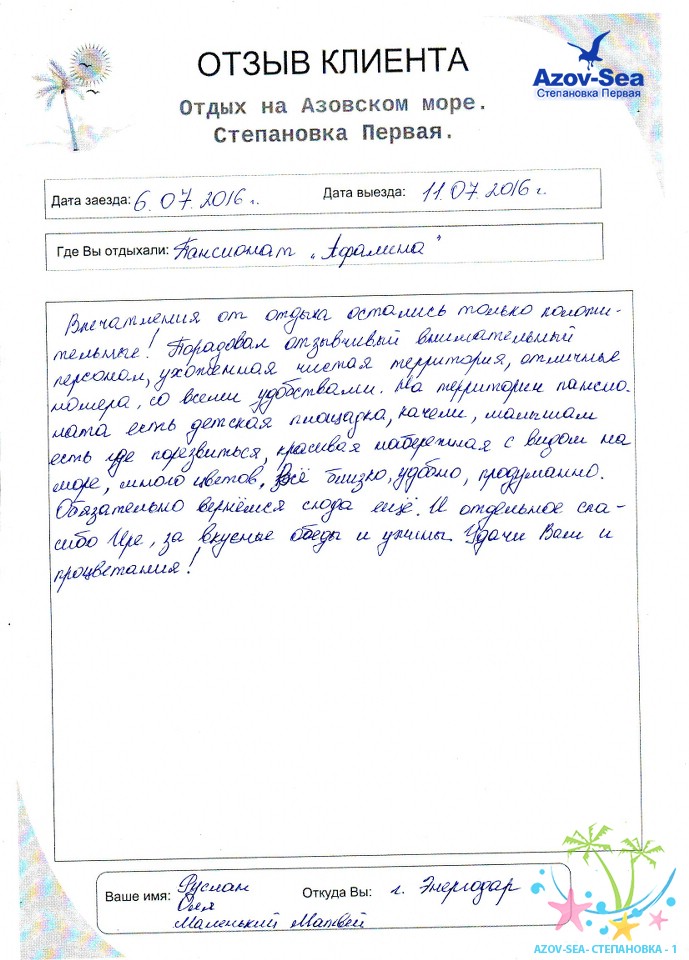 ОТЗЫВ КЛИЕНТА
Azov-Sea
Степановка Первая
Отдых на Азовском море.
Степановка Первая.
Дата заезда: 6.07.2016 г. Дата выезда: 11.07.2016 г.
Где Вы отдыхали: Пансионат „Афалина"
Впечатления от отдыха остались только положи-
тельные! Порадовал отзывчивый внимательный
персонал, ухоженная чистая территория, отличные
номера, со всеми удобствами. На территории пансио-
ната есть детская площадка, качели, малышам
есть где порезвиться, красивая набережная с видом на
море, много цветов. Всё близко, удобно, продуманно.
Обязательно вернёмся сюда ещё. И отдельное спа-
сибо Ире, за вкусные обеды и ужины. Удачи Вам и
процветания!
Ваше имя: Руслан Откуда Вы: г. Энергодар
Оля
Маленький Матвей
AZOV-SEA- СТЕПАНОВКА - 1